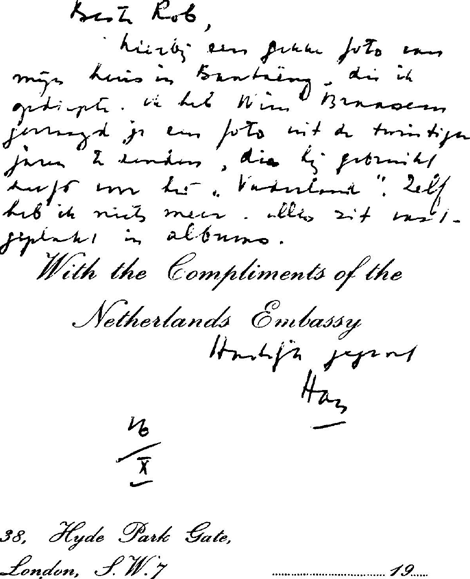 Beste Rob,
hierbij een gekke foto van
mijn huis in Bantaeng, die ik
opdiepte. Ik heb Wim Braasem
gevraagd je een foto uit de twintiger
jaren te zenden, die hij gebruikt
heeft voor het „Vaderland”. Zelf
heb ik niets meer. Alles zit vast-
geplakt in albums.
With the Compliments of the
Netherlands Embassy
Hartelijk gegroet
Han
16
X
38, Hyde Park Gate,
London, S.W.7 .......... 19....